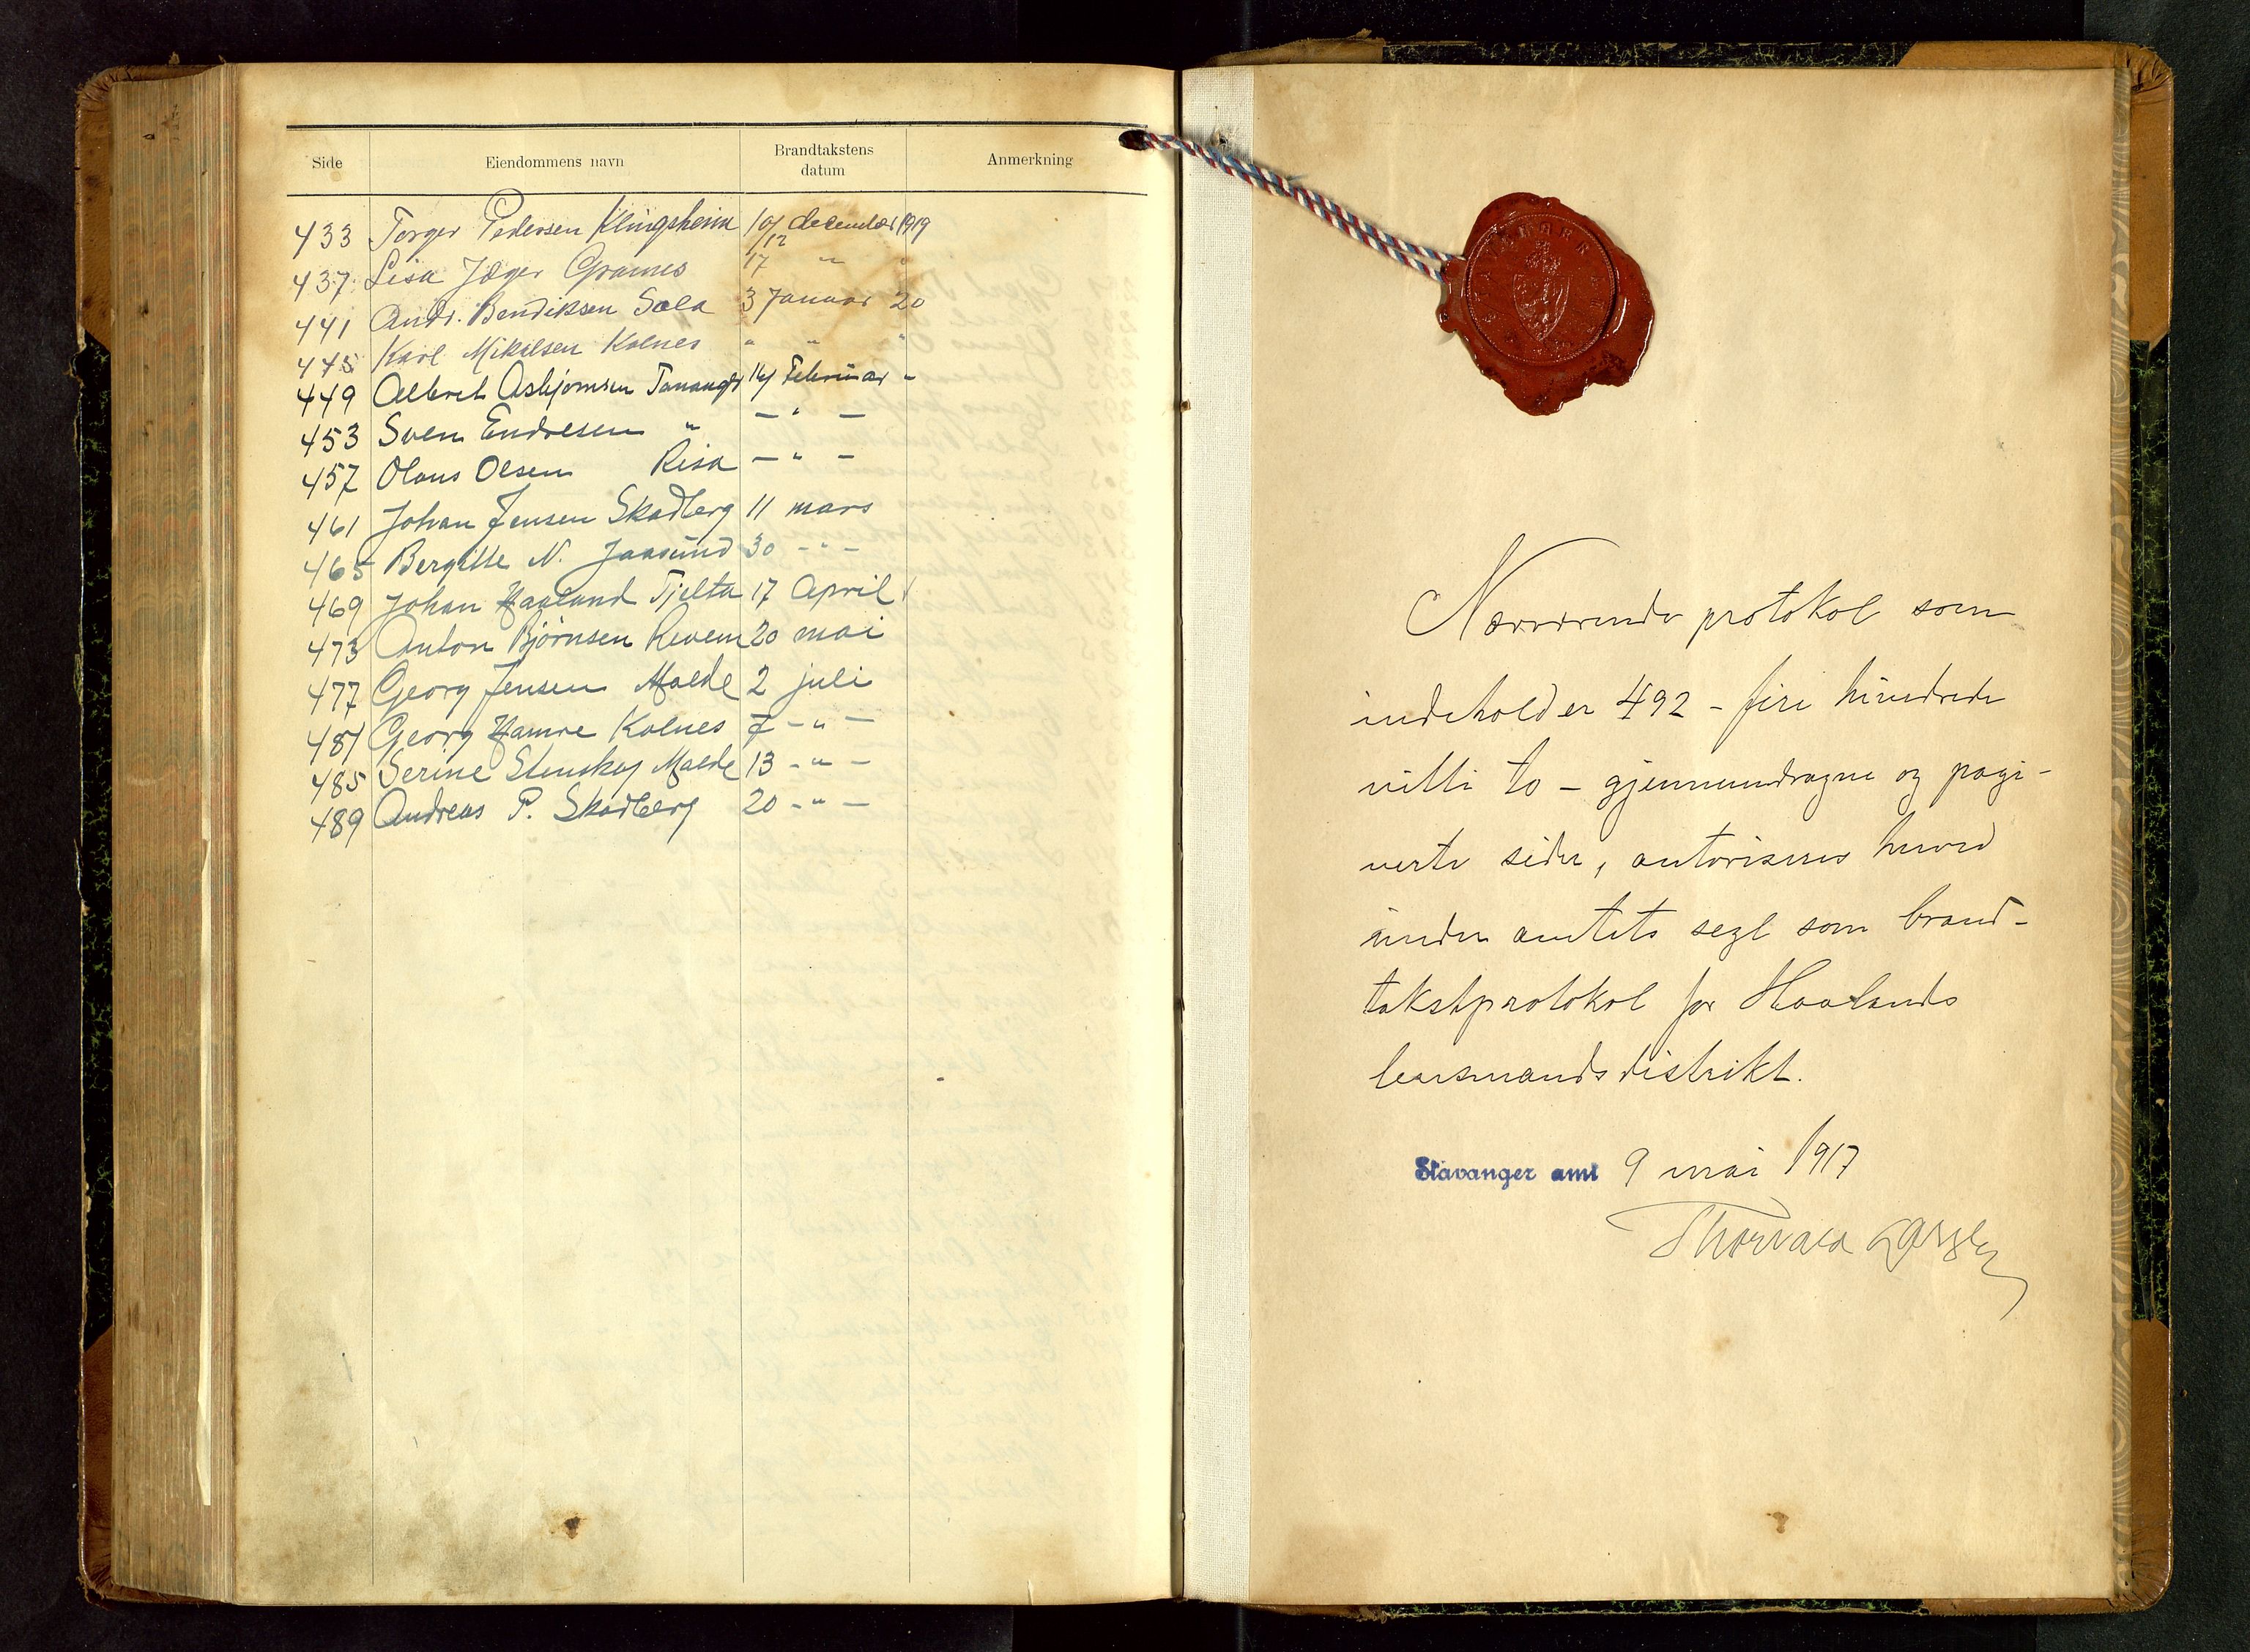 Side Eiendommens navn Brandtakstens datum Anmerkning
433 Torger Pedersen Klingsheim 10/12 december 1919
437 Lisa Jæger Grannes 17 " "
441 Andr. Bendiksen Sola 3 Januar 20
445 Karl Mikalsen Kolnes " " "
449 Albret Asbjørnsen Tananger 14 Februar "
453 Sven Endresen " – " –
457 Olaus Olsen Risa – " –
461 Johan Jensen Skadberg 11 mars
465 Bergitte N. Jaasund 30 – " –
469 Johan Haaland Tjelta 17 April
473 Anton Björnsen Revem 20 mai
477 Georg Jensen Malde 2 juli
481 Georg Hamre Kolnes 7 – " –
485 Serine Stenskej Malde 13 – " –
489 Andreas P. Skadberg 20 – " –
Nærværende protokol som
indeholder 492 – fire hundrede
nitti to – gjennemdragne og pagi-
nerte sider, autoriseres herved
under amtets segl som brand-
takstprotokol for Haalands
lensmandsdistrikt.
Stavanger amt 9 mai 1917
Thorvald Larsen